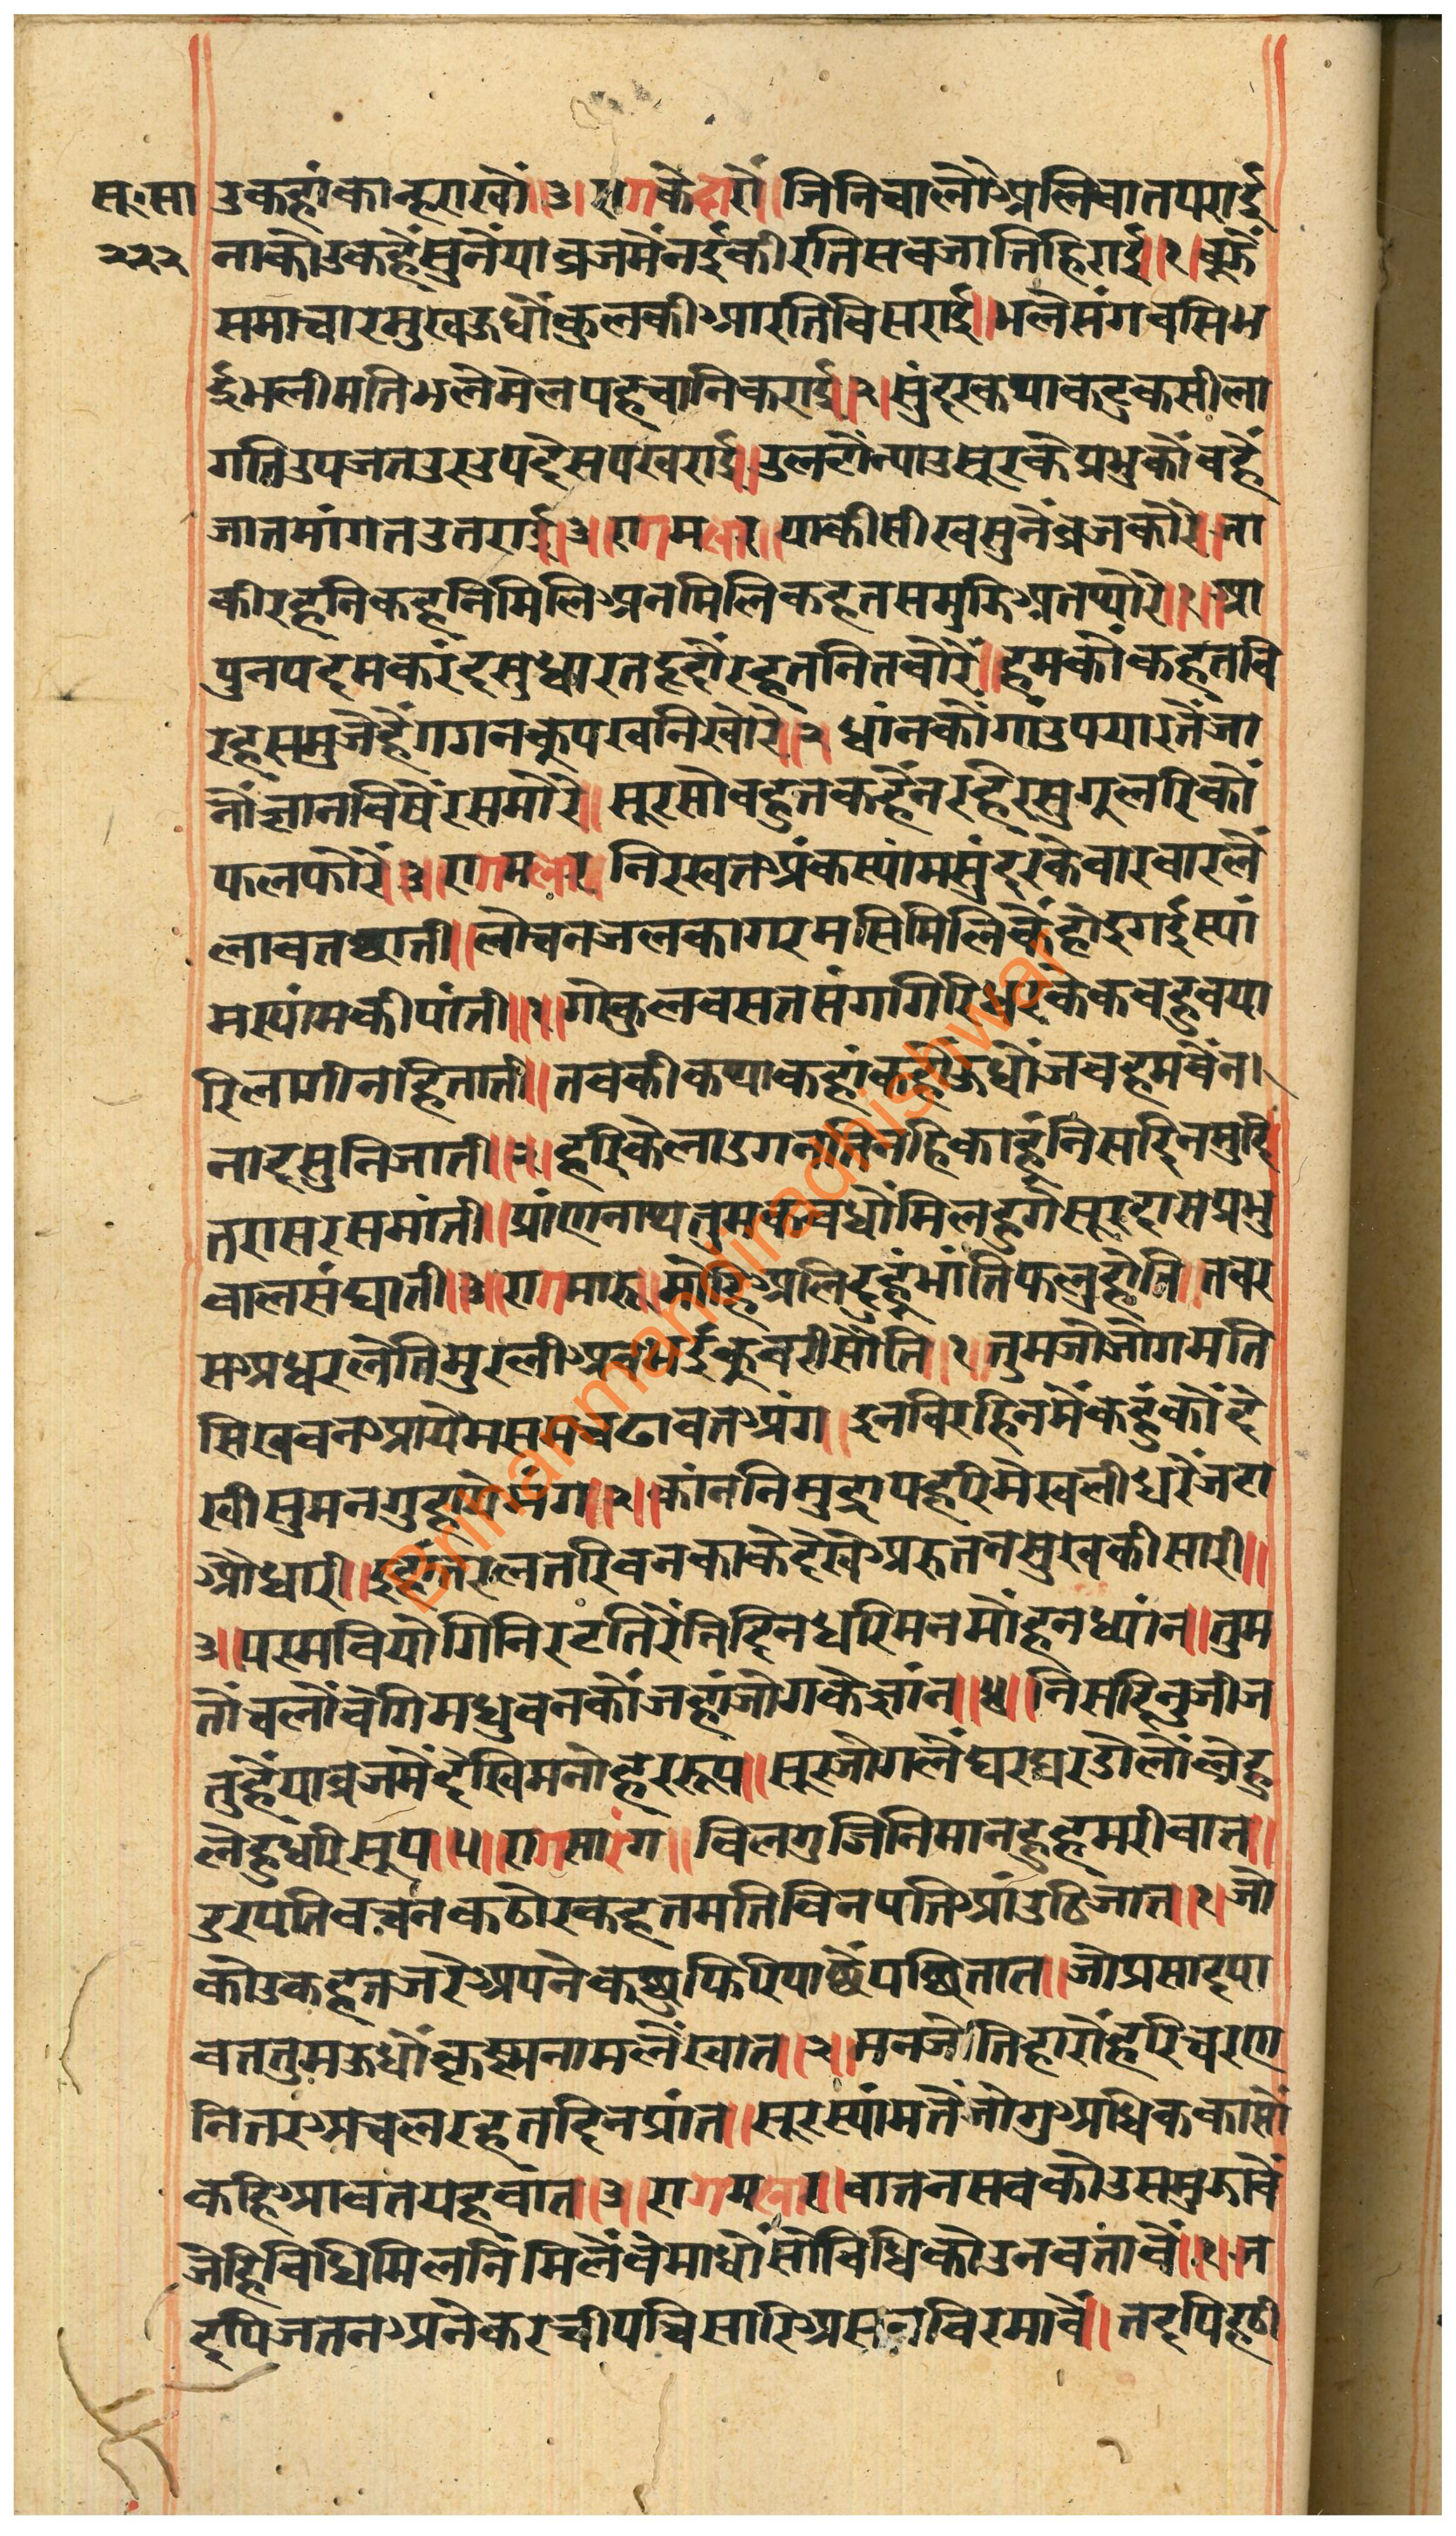 सू॰सा
२२२
उकहांकान्हराखौं॥३॥रागकेदारौ॥जिनिचालौअलिवातपराई
नाकोउकहैसुनैंयाव्रजमैंनईकीरतिसबजातिहिराई॥१॥बूझैं
समाचारमुखऊधौंकुलकीआरतिविसराई॥भलेसंगबसिभ
ईभलीमतिभलेमेलपहचानिकराई॥२॥सुंदरकथाकटुकसीला
गतिउपजतउरउपदेसपखराई॥उलटौन्याउसूरकेप्रभुकौंवहैं
जातमांगतउतराई॥३॥रागमलार॥याकीसीखसुनैंव्रजकोरे॥जा
कीरहनिकहनिमिलिअनमिलिकहतसमुझिअतथोरे॥१॥आ
पुनपदमकरंदसुधारतहृदौरहतनितबोरे॥हमकौंकहतवि
रहसमुजैहैंगगनकूपखनिखोरे॥२॥धांनकौंगांउपयारतैंजा
नौंज्ञानविषैरसमोरे॥सूरसोबहुतकहैंनरहैरसुगूलरिकौं
फलफोरें॥३॥रागमलार॥निरखतअंकस्यांमसुंदरकेबारबारलैं
लावतछाती॥लोचनजलकागरमसिमिलिकैंहोइगईस्यां
मस्यांमकीपांती॥१॥गोकुलवसतसंगगिरिधरकेकबहुबया
रिलागीनहिताती॥तबकीकथाकहांकहौऊधौंजबहमबैंन।
नादसुनिजाती॥२॥हरिकेलाडगनतिनहिकाहूंनिसदिनमुदि
तरासरसमांती॥प्रांणनाथतुमकबधौंमिलहुगेसूरदासप्रभु
बालसंघाती॥३॥रागमारू॥मोहिअलिदुहूंभांतिफलहोति॥तबर
सअधरलेतिमुरलीअबभईकुबरीसौति॥१॥तुमजोजोगमति
सिखवनआयेभसमचढावतअंग॥इनविरहिनमैंकहुंकौंदे
खीसुमनगुहायेमंग॥२॥कांननिमुद्रापहरिमेखलीधरेंजटा
आधारी॥इहांतरलतरिवनकाकेदेखेअरुतनसुखकीसारी॥
३॥परमवियोगिनिरटतिरैंनिदिनधरिमनमोंहनध्यांन॥तुम
तौंचलौंबेगिमधुबनकौंजहांजोगकेज्ञांन॥४॥निसदिनुजीज
तुहैंयाव्रजमेंदेखिमनोहररूप॥सूरजोगलैंघरघरडोलौंलेहु
लेहुधरिसूप॥५॥रागसारंग॥विलगुजिनिमानहुहमरीबात॥
डरपतिबचनकठोरकहतमतिविनपतिआंउठिजात॥१॥जो
कोउकहतजरेअपनेकछुफिरिपाछैंपछितात॥जोप्रसादपा
वततुमऊधौंकृस्ननामलैंखात॥२॥मनजोतिहारोहरिचरण
नितरअचलरहतदिनप्रांत॥सूरस्यांमतैंजोगुअधिककासौं
कहिआवतयहबात॥३॥रागमलार॥बातनसबकोउसमुझावैं
जेहिविधिमिलनिमिलैंवेमाधौंसोविधिकोउनबतावैं॥१॥ज
द्दपिजतनअनेकरचीपचिसारिअसनविरमावैं॥तद्दपिहठी